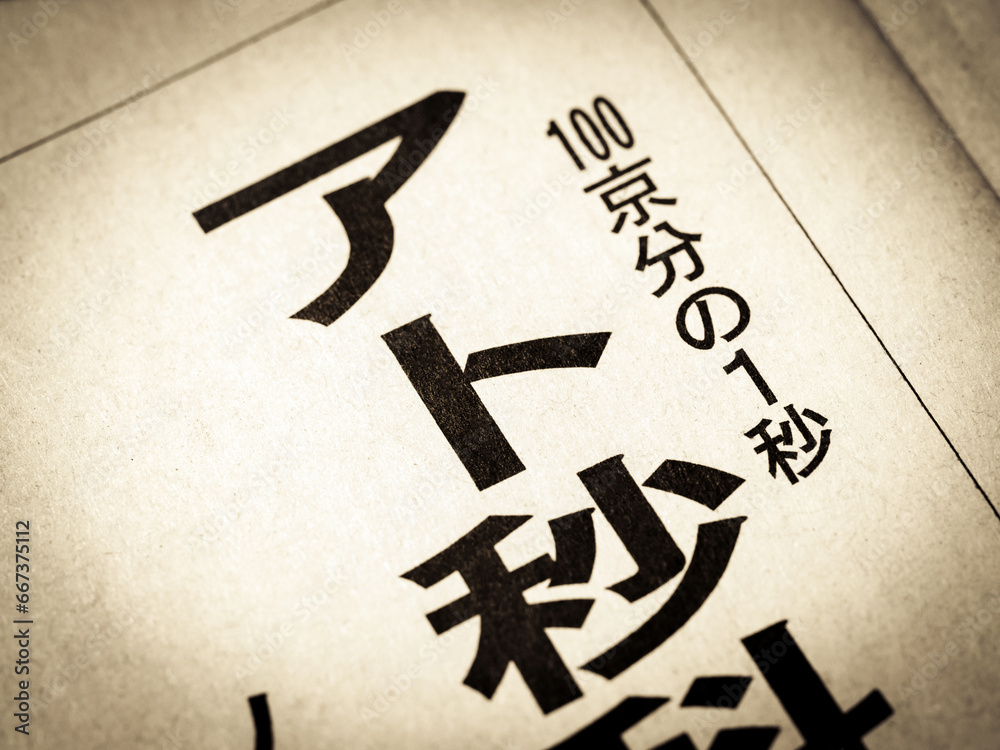 100京分の1秒
アト秒科
Adobe Stock | #667375112